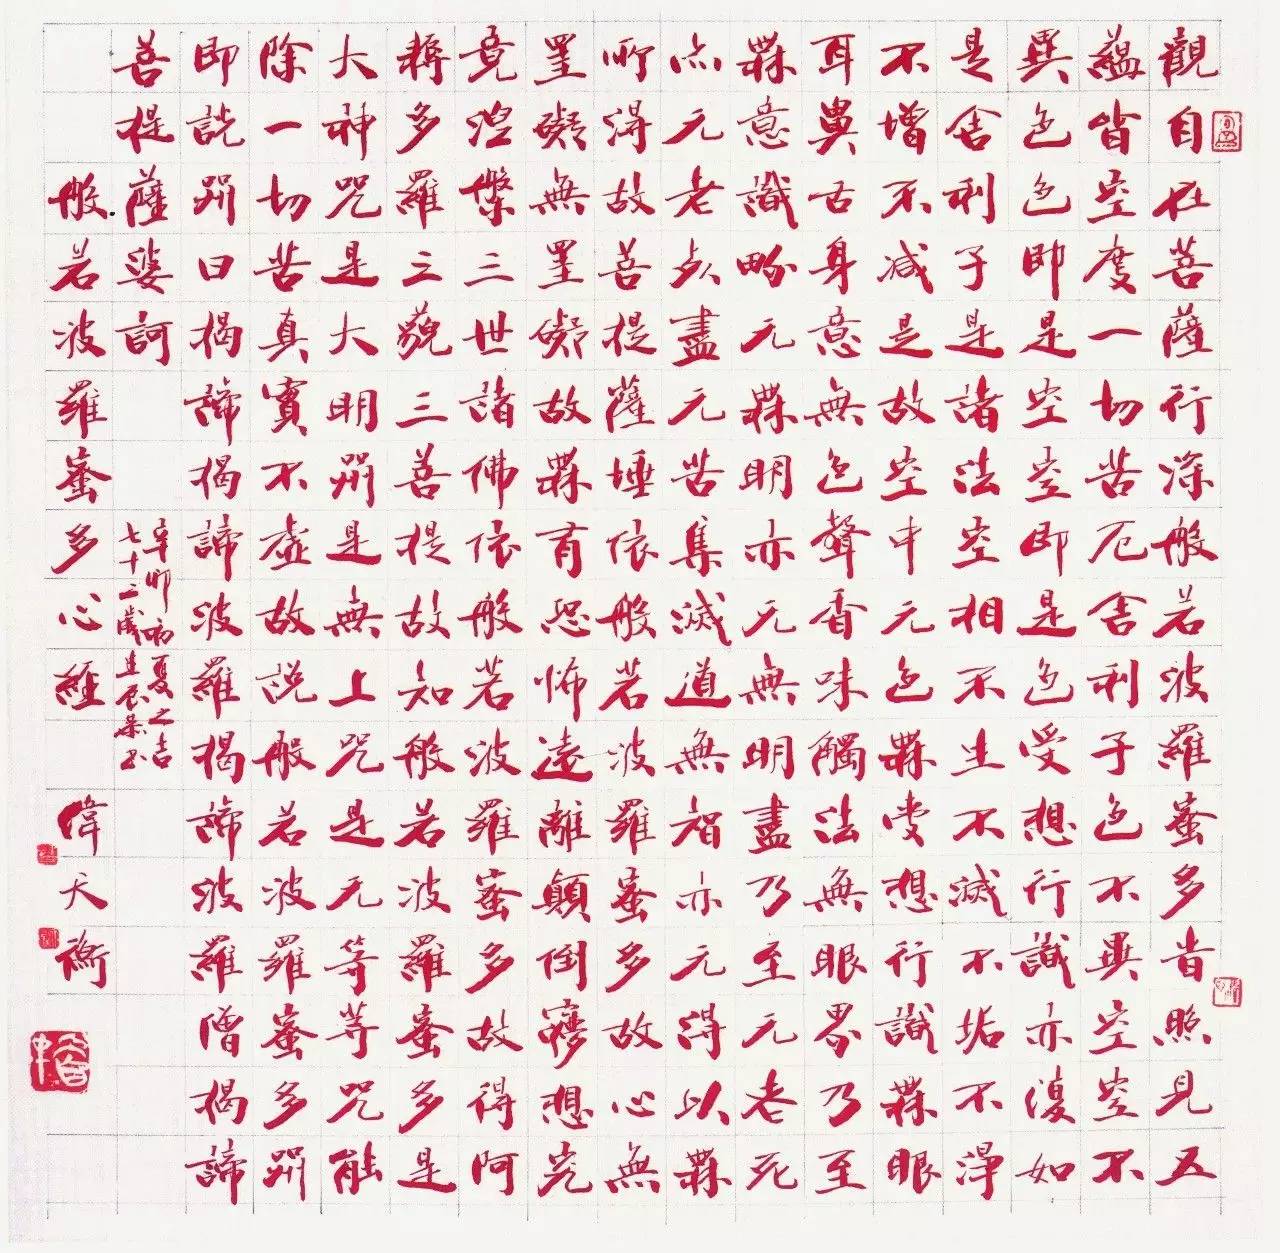 觀自在菩薩行深般若波羅蜜多旹照見五
蘊皆空度一切苦厄舍利子色不異空空不
異色色即是空空即是色受想行識亦復如
是舍利子是諸法空相不生不滅不垢不淨
不增不減是故空中无色無受想行識無眼
耳鼻舌身意無色聲香味觸法無眼界乃至
無意識畍无無明亦无無明盡乃至无老死
亦无老死盡无苦集滅道無智亦无得以無
所得故菩提薩埵依般若波羅蜜多故心無
罣礙無罣礙故無有恐怖遠離顛倒夢想究
竟涅槃三世諸佛依般若波羅蜜多故得阿
耨多羅三藐三菩提故知般若波羅蜜多是
大神咒是大明咒是無上咒是无等等咒能
除一切苦真實不虛故說般若波羅蜜多咒
即說咒曰揭諦揭諦波羅揭諦波羅僧揭諦
菩提薩婆訶
辛卯初夏之吉
七十二歲
般若波羅蜜多心經 韓天衡